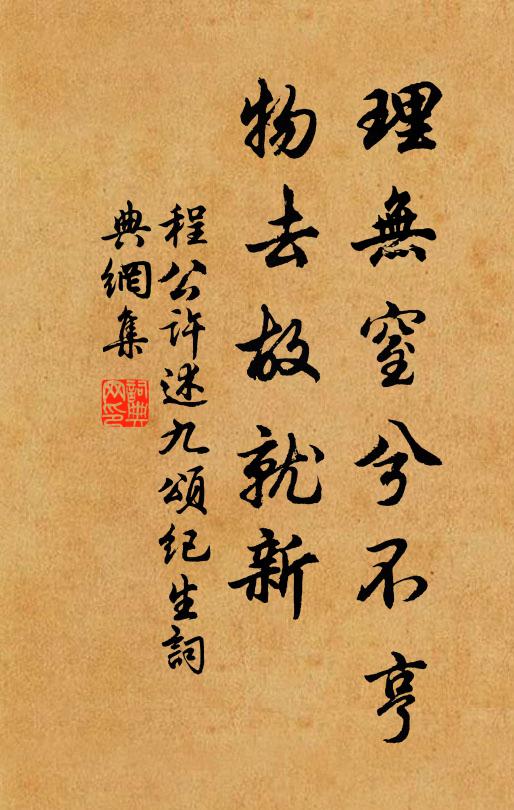 理無窒兮不亨
物去故就新
程公許述九頌紀生詞
典網集
詞典网印